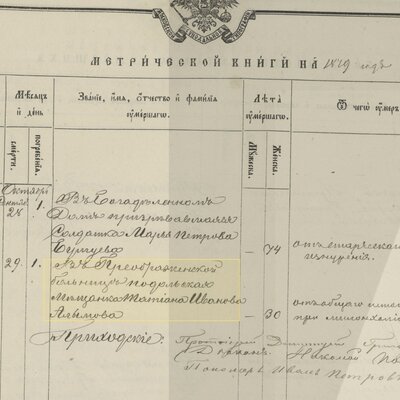 Метрической книги на 1879 годъ
Мѣсяцъ и день
Званіе, имя, отчество и фамилія умершаго.
Лѣта умершаго.
Ѿ чегѡ умеръ
смерти.
погребенія.
Мужеска.
Женска.
Октябрь
28 1. Въ Богадѣленномъ
Домѣ призрѣваемая
Солдатка Марья Петрова
— 74 отъ старческаго
изнуренія.
29. 1. Въ Преображенской
больницѣ подольская
мѣщанка Татіана Иванова
Акимова — 30 отъ общаго
при меланхоліи
Приходскіе: Протоіерей
Діаконъ Николай
Пономарь Иванъ Петровъ